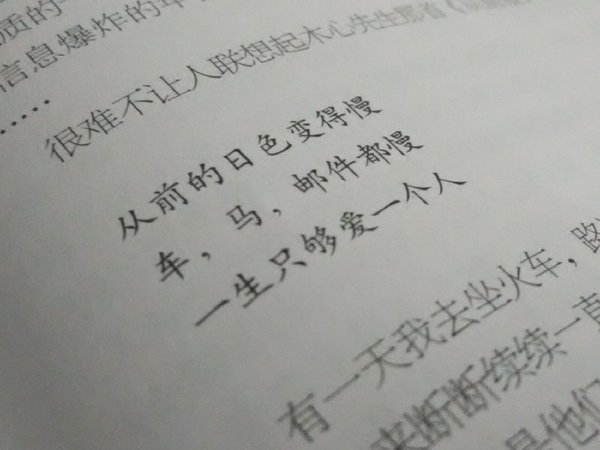 质的一
信息爆炸的年
……
很难不让人联想起木心先生那首《
从前的日色变得慢
车，马，邮件都慢
一生只够爱一个人
有一天我去坐火车，路
来断断续续一直
是他们